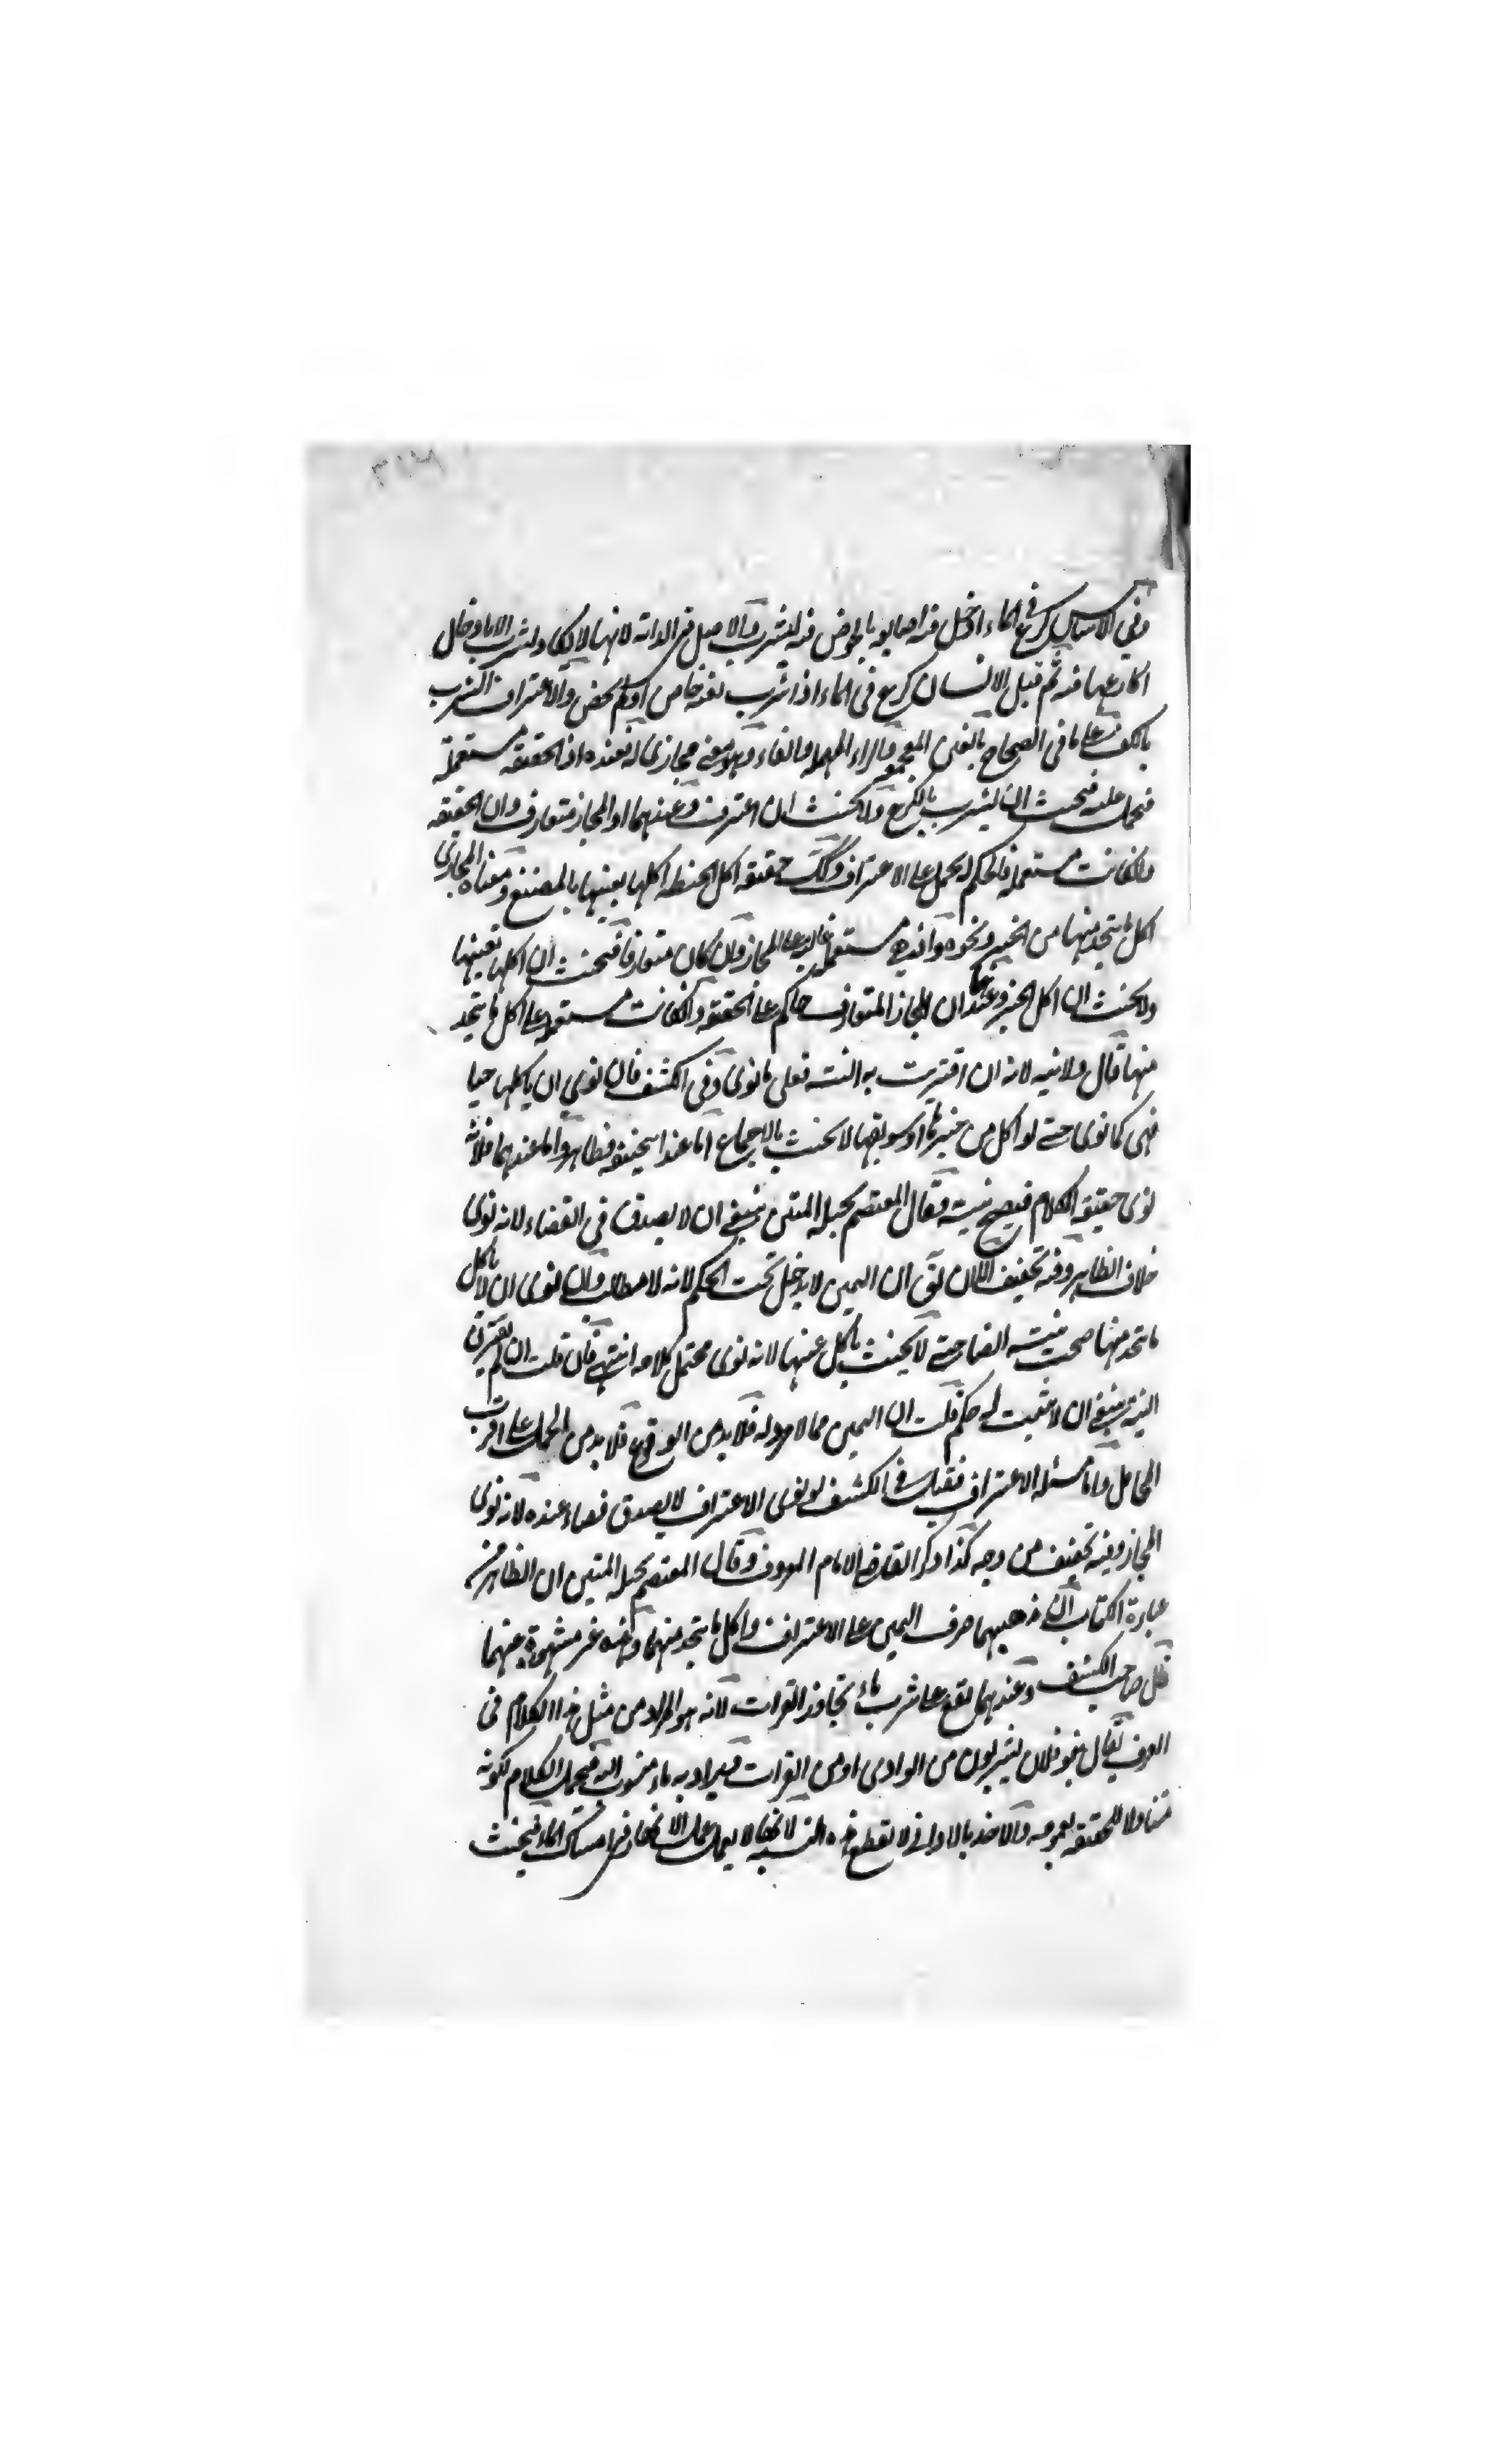 وفي الاساس كرع في الماء ادخل فيه اكارعه بالخوض فيه ليشرب والاصل في الدابة لانها لا تكاد تشرب الا بادخال
اكارعها فيه ثم قيل للانسان كرع في الماء اذا شرب بفيه خاض او لم يخض والاغتراف الشرب
بالكف على ما في الصحاح بالغين المعجمة والراء المهملة والفاء وهو معنى مجازي له فعنده اذ الحقيقة مستعملة
فيحمل عليه فيحنث ان يشرب بالكرع ولا يحنث ان اغترف وعندهما اذ المجاز متعارف وان الحقيقة
وان كانت مستعملة فالحكم يحمل على الاغتراف وكذلك حقيقة اكل الحنطة اكلها بعينها بالمضغ ومعناه المجازي
اكل ما يتخذ منها من الخبز ونحوه وانه هي مستعملة غالبة على المجاز وان كان متعارفا فيحنث ان اكلها بعينها
ولا يحنث ان اكل الخبز وعندهما ان المجاز المتعارف حاكم على الحقيقة وان كانت مستعملة على اكل ما يتخذ
منها قال ولا نية لانه ان اقترنت به النية فعلى ما نوى وفي الكشف فان نوى ان ياكلها حبا
فهي كما نوى حتى لو اكل من خبزها او سويقها لا يحنث بالاجماع اما عند ابي حنيفة فظاهر واما عندهما فلانه
نوى حقيقة الكلام فيصح نيته وقال المعتصم بحبله المتين ينبغي ان لا يصدق في القضاء لانه نوى
خلاف الظاهر وفيه تخفيف الا ان يق ان اليمين لا يدخل تحت الحكم لانه لا مطالب وان نوى ان لا ياكل
ما يتخذ منها صحت نيته ايضا حتى لا يحنث باكل عينها لانه نوى محتمل كلامه انتهى فان قلت ان لم يقترن
النية ينبغي ان لا يثبت له حكم قلت ان اليمين مما لا مرد له فلا بد من الوقوع فلا بد من الحمل على اقرب
المحامل واما مسئلة الاغتراف فقيل في الكشف لو نوى الاغتراف لا يصدق قضاء عنده لانه نوى
المجاز وفيه تخفيف من وجه كذا ذكر القاضي الامام المعروف وقال المعتصم بحبله المتين ان الظاهر من
عبارة الكتاب ان مذهبهما صرف اليمين على الاغتراف واكل ما يتخذ منهما وهذه غير مشهورة عنهما
قال صاحب الكشف وعندهما يقع على شرب ماء يجاور الفرات لانه هو المراد من مثل هذا الكلام في
العرف يقال بنو فلان يشربون من الوادي او من الفرات ويراد به ماء منسوب اليه فيحمل الكلام لكونه
متناولا للحقيقة بعمومه والاخذ بالاواني لا يقطع هذه النسبة لانها لا يعمل عمل الانهار في امساك الماء فيحنث